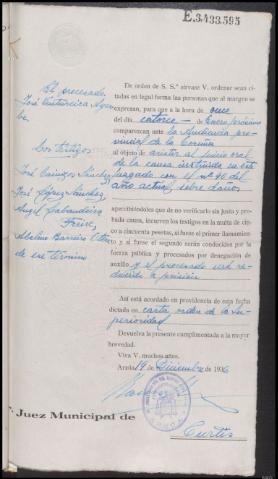 E.3433.595
De orden de S. S.ª sirvase V. ordenar sean ci-
tadas en legal forma las personas que al margen se
expresan, para que a la hora de once
del dia catorce de Enero próximo
comparezcan ante la Audiencia pro-
vincial de la Coruña
al objeto de asistir al juicio oral
de la causa instruida en este
Juzgado con el nº 90 del
año actual, sobre daños
apercibiéndoles que de no verificarlo sin justa y pro-
bada causa, incurren los testigos en la multa de cin-
co a cincuenta pesetas, si fuese el primer llamamien-
to y si fuese el segundo serán conducidos por la
fuerza pública y procesados por denegación de
auxilio y el procesado será re-
ducido a prisión
Asi está acordado en providencia de esta fecha
dictada en carta orden de la Su-
perioridad
Devuelva la presente cumplimentada a la mayor
brevedad.
Viva V. muchos años.
Arzúa 19 de Diciembre de 1936
El procesado
José
Los testigos
José Sánchez
José López Sánchez
Angel
Freire
de ese término
Juez Municipal de
Curtis